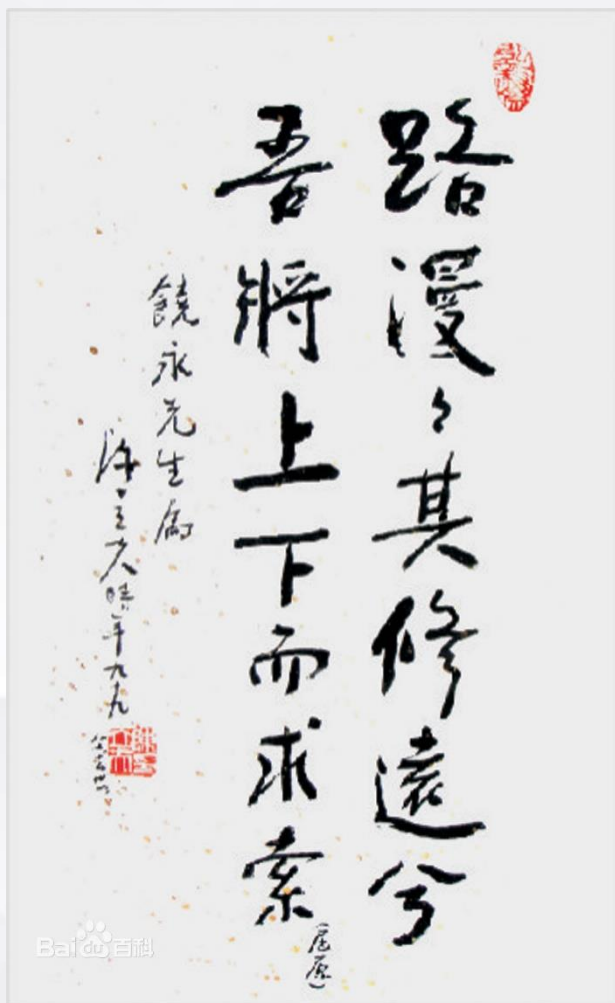 路漫々其修遠兮
吾將上下而求索
（屈原）
饒永先生属
陳立夫時年九十九
Bai百科